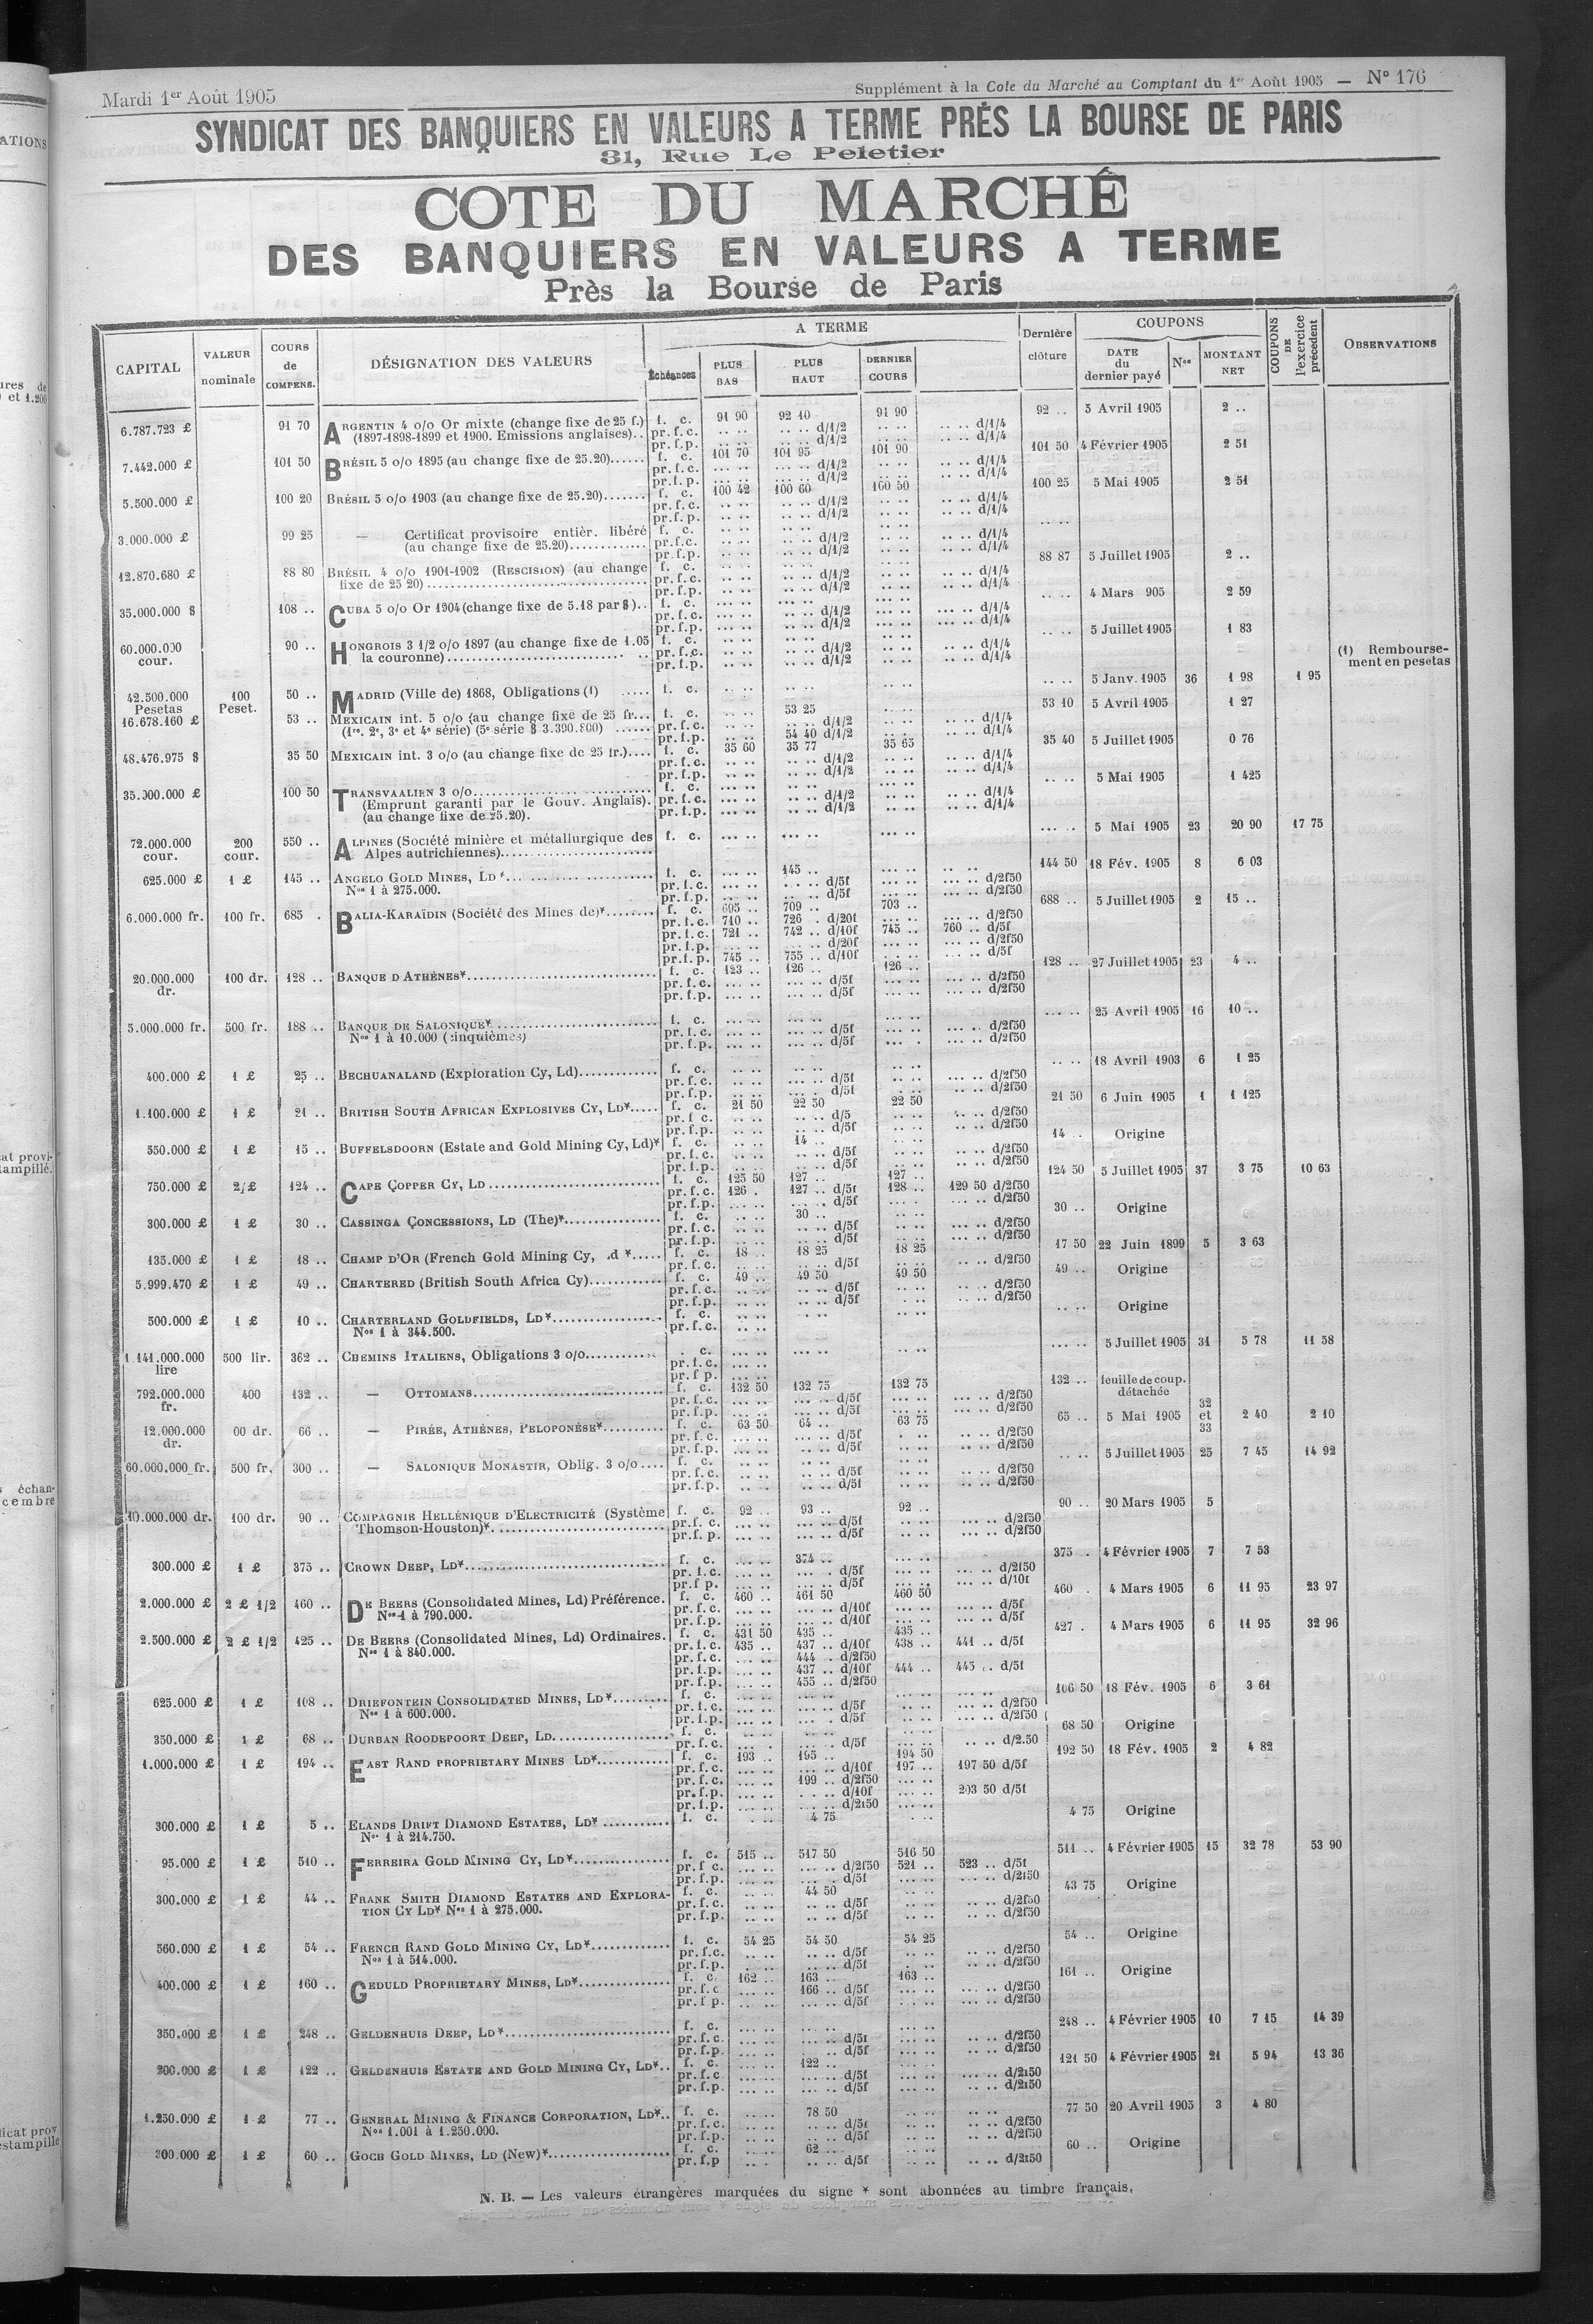 Mardi 1er Août 1905
Supplément à la Cote du Marché au Comptant du 1er Août 1905 — N° 176
SYNDICAT DES BANQUIERS EN VALEURS A TERME PRÈS LA BOURSE DE PARIS
31, Rue Le Peletier
COTE DU MARCHÉ
DES BANQUIERS EN VALEURS A TERME
Près la Bourse de Paris
CAPITAL | VALEUR nominale | COURS de COMPENS. | DÉSIGNATION DES VALEURS | A TERME | Échéances | PLUS BAS | PLUS HAUT | DERNIER COURS | Dernière clôture | COUPONS | DATE du dernier payé | Nos | MONTANT NET | COUPONS DE l'exercice précédent | OBSERVATIONS
6.787.723 £ 91 70 ARGENTIN 4 o/o Or mixte (change fixe de 25 f.) f. c. 91 90 92 10 91 90 92 .. 5 Avril 1905 2 ..
(1897-1898-1899 et 1900. Emissions anglaises).. pr. f.c. .. .. .. .. d/1/2 .. .. .. .. d/1/4
pr. f.p. .. .. .. .. d/1/2 .. .. .. .. d/1/4
7.442.000 £ 101 50 BRÉSIL 5 o/o 1895 (au change fixe de 25.20)...... f. c. 101 70 101 95 101 90 101 50 4 Février 1905 2 51
pr. f.c. d/1/2 d/1/4
pr. f.p. d/1/2 d/1/4
5.500.000 £ 100 20 BRÉSIL 5 o/o 1903 (au change fixe de 25.20)....... f. c. 100 42 100 60 100 50 100 25 5 Mai 1905 2 51
pr. f.c. d/1/2 d/1/4
pr. f.p. d/1/2 d/1/4
3.000.000 £ 99 25 — Certificat provisoire entièr. libéré f. c.
(au change fixe de 25.20)............. pr. f.c. d/1/2 d/1/4
pr. f.p. d/1/2 d/1/4
12.870.680 £ 88 80 BRÉSIL 4 o/o 1901-1902 (RESCISION) (au change f. c. 88 87 5 Juillet 1905 2 ..
fixe de 25 20)........ pr. f.c. d/1/2 d/1/4
pr. f.p. d/1/2 d/1/4
35.000.000 $ 108 .. CUBA 5 o/o Or 1904 (change fixe de 5.18 par $).. f. c. 4 Mars 905 2 59
pr. f.c. d/1/2 d/1/4
pr. f.p. d/1/2 d/1/4
60.000.000 cour. 90 .. HONGROIS 3 1/2 o/o 1897 (au change fixe de 1.05 f. c. 5 Juillet 1905 1 83
la couronne)........ pr. f.c. d/1/2 d/1/4
pr. f.p. d/1/2 d/1/4
(1) Remboursement en pesetas
42.500.000 Pesetas 100 Peset. 50 .. MADRID (Ville de) 1868, Obligations (1) ..... f. c. 5 Janv. 1905 36 1 98 1 95
16.678.160 £ 53 .. MEXICAIN int. 5 o/o (au change fixe de 25 fr... f. c. 53 25 53 10 5 Avril 1905 1 27
(1re. 2e, 3e et 4e série) (5e série $ 3.390.800) ...... pr. f.c. d/1/2 d/1/4
pr. f.p. 54 40 d/1/2 d/1/4
48.476.975 $ 35 50 MEXICAIN int. 3 o/o (au change fixe de 25 fr.).... f. c. 35 60 35 77 35 65 35 40 5 Juillet 1905 0 76
pr. f.c. d/1/2 d/1/4
pr. f.p. d/1/2 d/1/4
35.000.000 £ 100 50 TRANSVAALIEN 3 o/o........ f. c. 5 Mai 1905 1 425
(Emprunt garanti par le Gouv. Anglais). pr. f.c. d/1/2 d/1/4
(au change fixe de 25.20). pr. f.p. d/1/2 d/1/4
72.000.000 cour. 200 cour. 550 .. ALPINES (Société minière et métallurgique des f. c. 5 Mai 1905 23 20 90 17 75
Alpes autrichiennes)........
625.000 £ 1 £ 145 .. ANGELO GOLD MINES, LD *........ f. c. 145 .. 144 50 18 Fév. 1905 8 6 03
Nos 1 à 275.000. pr. f.c. d/5f d/2f50
pr. f.p. d/5f d/2f50
6.000.000 fr. 100 fr. 685 . BALIA-KARAÏDIN (Société des Mines de)*........ f. c. 695 .. 709 .. 703 .. 688 .. 5 Juillet 1905 2 15 ..
pr. f.c. 710 .. 726 .. d/20f d/2f50
pr. f.c. 721 .. 742 .. d/10f 745 .. 760 .. d/5f
pr. f.p. d/20f d/2f50
pr. f.p. 745 .. 755 .. d/10f d/5f
20.000.000 dr. 100 dr. 128 .. BANQUE D'ATHÈNES*........ f. c. 123 .. 126 .. 126 .. 128 .. 27 Juillet 1905 23 4 ..
pr. f.c. d/5f d/2f50
pr. f.p. d/5f d/2f50
5.000.000 fr. 500 fr. 188 .. BANQUE DE SALONIQUE*........ f. c. 25 Avril 1905 16 10 ..
Nos 1 à 10.000 (cinquièmes) pr. f.c. d/5f d/2f50
pr. f.p. d/5f d/2f50
400.000 £ 1 £ 25 .. BECHUANALAND (Exploration Cy, Ld)............. f. c. 18 Avril 1903 6 1 25
pr. f.c. d/5f d/2f50
pr. f.p. d/5f d/2f50
1.100.000 £ 1 £ 21 .. BRITISH SOUTH AFRICAN EXPLOSIVES CY, LD*..... f. c. 21 50 22 50 22 50 21 50 6 Juin 1905 1 1 125
pr. f.c. d/5 d/2f50
pr. f.p. d/5f d/2f50
550.000 £ 1 £ 15 .. BUFFELSDOORN (Estate and Gold Mining Cy, Ld)* f. c. 14 .. 14 .. Origine
pr. f.c. d/5f d/2f50
pr. f.p. d/5f d/2f50
750.000 £ 2 £ 124 .. CAPE COPPER CY, LD........ f. c. 125 50 127 .. 127 .. 124 50 5 Juillet 1905 37 3 75 10 63
pr. f.c. 126 . 127 .. d/5f 128 .. 129 50 d/2f50
pr. f.p. d/5f d/2f50
300.000 £ 1 £ 30 .. CASSINGA CONCESSIONS, LD (The)*........ f. c. 30 .. 30 .. Origine
pr. f.c. d/5f d/2f50
pr. f.p. d/5f d/2f50
135.000 £ 1 £ 18 .. CHAMP D'OR (French Gold Mining Cy, d *..... f. c. 18 .. 18 25 18 25 17 50 22 Juin 1899 5 3 63
pr. f.c. d/5f d/2f50
5.999.470 £ 1 £ 49 .. CHARTERED (British South Africa Cy)............ f. c. 49 .. 49 50 49 50 49 .. Origine
pr. f.c. d/5f d/2f50
pr. f.p. d/5f d/2f50
500.000 £ 1 £ 10 .. CHARTERLAND GOLDFIELDS, LD*........ f. c. Origine
Nos 1 à 344.500. pr. f.c.
1 141.000.000 lire 500 lir. 362 .. CHEMINS ITALIENS, Obligations 3 o/o........ c. 5 Juillet 1905 31 5 78 11 58
pr. f.c.
pr f p.
792.000.000 fr. 400 132 .. — OTTOMANS........ f. c. 132 50 132 75 132 75 132 .. feuille de coup. détachée
pr. f.c. d/5f d/2f50
pr. f.p. d/5f d/2f50
12.000.000 dr. 00 dr. 66 .. — PIRÉE, ATHÈNES, PÉLOPONÈSE*........ f. c. 63 50 64 .. 63 75 65 .. 5 Mai 1905 32 et 33 2 40 2 10
pr. f.c. d/5f d/2f50
pr. f.p. d/5f d/2f50
60.000.000 fr. 500 fr. 300 .. — SALONIQUE MONASTIR, Oblig. 3 o/o.... f. c. 5 Juillet 1905 25 7 45 14 92
pr. f.c. d/5f d/2f50
pr. f.p. d/5f d/2f50
10.000.000 dr. 100 dr. 90 .. COMPAGNIE HELLÉNIQUE D'ELECTRICITÉ (Système f. c. 92 .. 93 .. 92 .. 90 .. 20 Mars 1905 5
Thomson-Houston)*........ pr. f. c. d/5f d/2f50
pr. f. p. d/5f d/2f50
300.000 £ 1 £ 375 .. CROWN DEEP, LD*........ f. c. 374 .. 375 . 4 Février 1905 7 7 53
pr. f.c. d/5f d/2f50
pr.f p. d/5f d/10f
2.000.000 £ 2 £ 1/2 460 .. DE BEERS (Consolidated Mines, Ld) Préférence. f. c. 460 .. 461 50 460 50 460 . 4 Mars 1905 6 11 95 23 97
Nos 1 à 790.000. pr. f.c. d/10f d/5f
pr. f.p. d/10f d/5f
2.500.000 £ 2 £ 1/2 425 .. DE BEERS (Consolidated Mines, Ld) Ordinaires. f. c. 431 50 435 .. 435 .. 427 . 4 Mars 1905 6 11 95 32 96
Nos 1 à 840.000. pr. f.c. 435 .. 437 .. d/10f 438 .. 441 .. d/5f
pr. f.c. 444 .. d/2f50
pr. f.p. 437 .. d/10f 444 .. 445 .. d/5f
pr. f.p. 455 .. d/2f50
625.000 £ 1 £ 108 .. DRIEFONTEIN CONSOLIDATED MINES, LD*........ f. c. 106 50 18 Fév. 1905 6 3 61
Nos 1 à 600.000. pr. f.c. d/5f d/2f50
pr. f.p. d/5f d/2f50
350.000 £ 1 £ 68 .. DURBAN ROODEPOORT DEEP, LD........ f. c. 68 50 Origine
pr. f.c. d/5f d/2.50
1.000.000 £ 1 £ 194 .. EAST RAND PROPRIETARY MINES LD*........ f. c. 193 .. 195 .. 194 50 192 50 18 Fév. 1905 2 4 82
pr. f.c. d/10f 197 .. 197 50 d/5f
pr. f.c. 199 .. d/2f50
pr. f.p. d/10f 203 50 d/5f
pr. f.p. d/2f50
300.000 £ 1 £ 5 .. ELANDS DRIFT DIAMOND ESTATES, LD*........ f. c. 4 75 4 75 Origine
Nos 1 à 214.750.
95.000 £ 1 £ 510 .. FERREIRA GOLD MINING CY, LD*........ f. c. 515 .. 517 50 516 50 511 .. 4 Février 1905 15 32 78 53 90
pr. f c. d/2f50 521 .. 523 .. d/5f
pr. f.p. d/5f d/2f50
300.000 £ 1 £ 44 .. FRANK SMITH DIAMOND ESTATES AND EXPLORA- f. c. 44 50 43 75 Origine
TION CY LD* Nos 1 à 275.000. pr. f.c. d/5f d/2f50
pr. f.p. d/5f d/2f50
560.000 £ 1 £ 54 .. FRENCH RAND GOLD MINING CY, LD*........ f. c. 54 25 54 50 54 25 54 .. Origine
Nos 1 à 514.000. pr. f.c. d/5f d/2f50
pr. f.p. d/5f d/2f50
400.000 £ 1 £ 160 .. GEDULD PROPRIETARY MINES, LD*........ f. c. 162 .. 163 .. 163 .. 161 .. Origine
pr. f.c 166 .. d/5f d/2f50
pr. f p. d/5f d/2f50
350.000 £ 1 £ 248 .. GELDENHUIS DEEP, LD*........ f. c. 248 .. 4 Février 1905 10 7 15 14 39
pr. f.c. d/5f d/2f50
pr. f.p. d/5f d/2f50
200.000 £ 1 £ 122 .. GELDENHUIS ESTATE AND GOLD MINING CY, LD*.. f. c. 122 .. 121 50 4 Février 1905 21 5 94 13 36
pr. f.c d/5f d/2f50
pr. f.p. d/5f d/2f50
1.250.000 £ 1 £ 77 .. GENERAL MINING & FINANCE CORPORATION, LD*.. f. c. 78 50 77 50 20 Avril 1905 3 4 80
Nos 1.001 à 1.250.000. pr. f.c. d/5f d/2f50
pr. f.p. d/5f d/2f50
300.000 £ 1 £ 60 .. GOCH GOLD MINES, LD (New)*........ f. c. 62 .. 60 .. Origine
pr. f.p d/5f d/2f50
N. B. — Les valeurs étrangères marquées du signe * sont abonnées au timbre français.